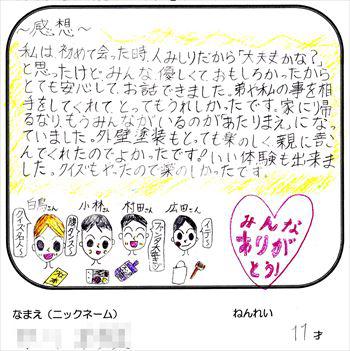 〜感想〜
私は、初めて会った時、人みしりだから「大丈夫かな?」
と思ったけど、みんな、優しくておもしろかったから
とても安心して、お話できました。弟や私の事を相
手をしてくれてとってもうれしかったです。家に帰
るなり、もうみんながいるのが「あたりまえ」になっ
ていました。外壁塗装もとっても楽しく親に喜
んでくれたのでよかったです!いい体験も出来ま
した。クイズもやったので楽しかったです。
白鳥さん 小林さん 村田さん 広田さん
クイズ名人〜
腰ダンス〜
ファンタ大好き〜
イェ〜
みんな
ありが
とう!
なまえ(ニックネーム)
ねんれい
11才